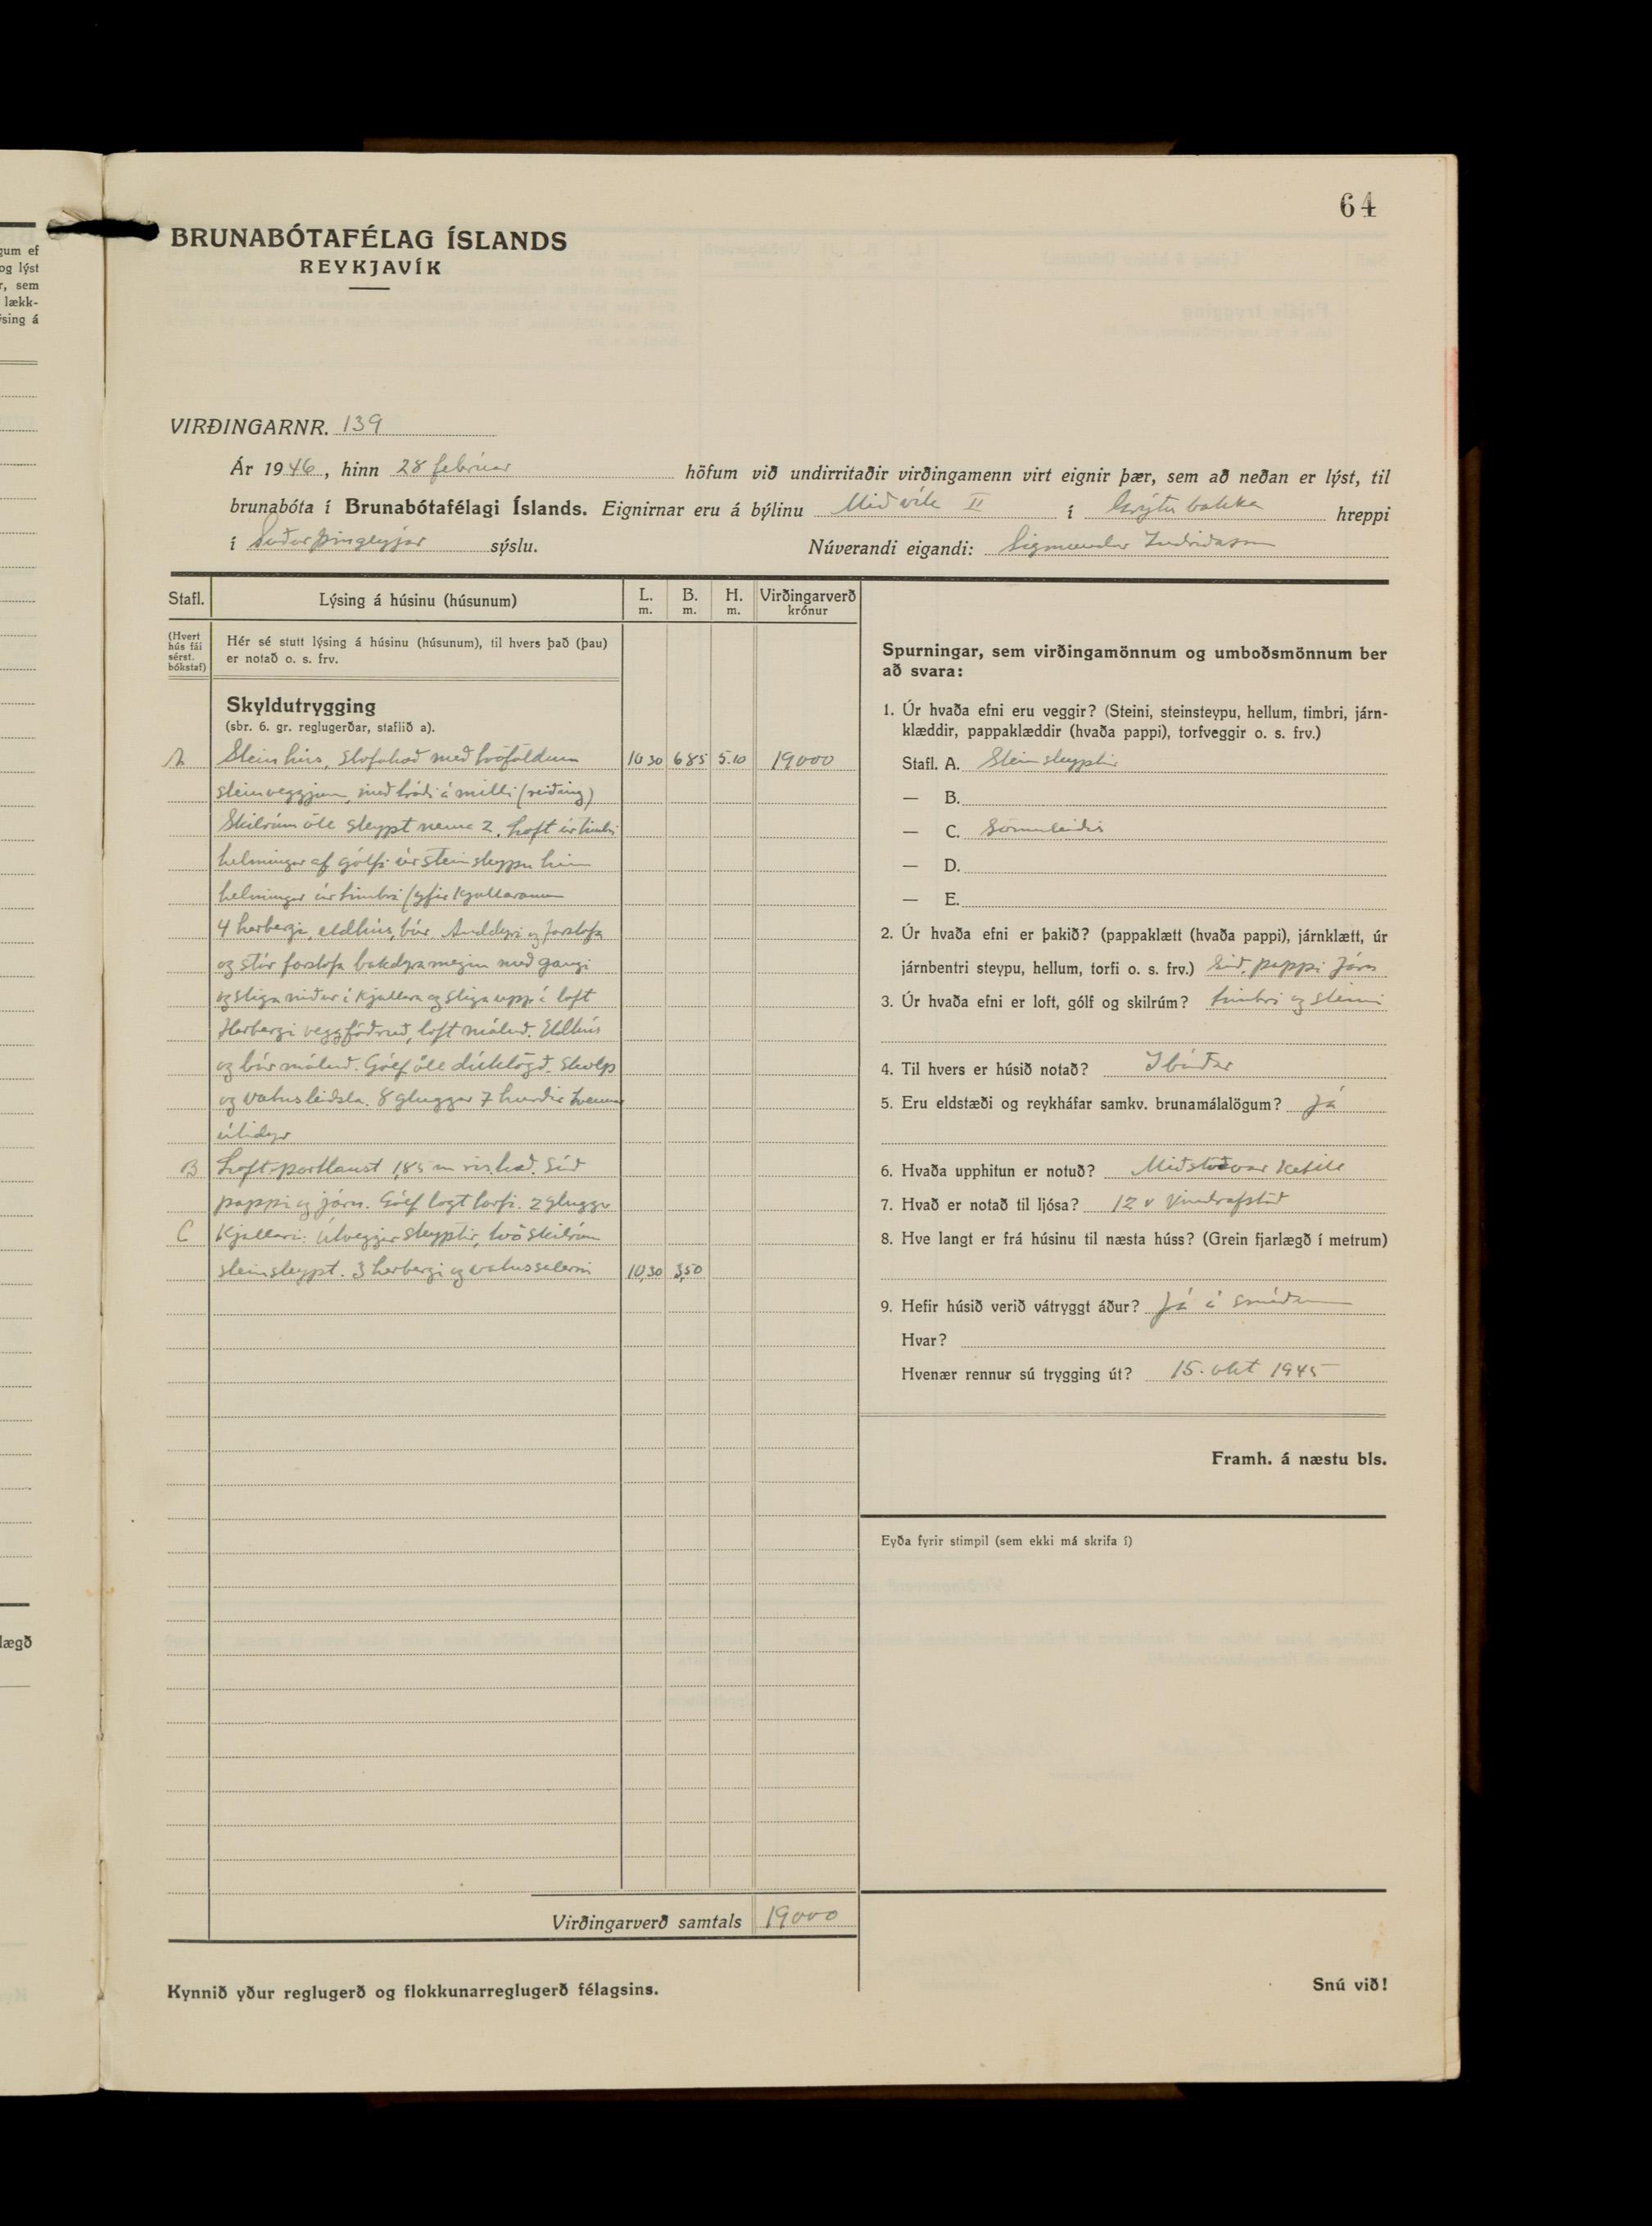 64
BRUNABÓTAFÉLAG ÍSLANDS
REYKJAVÍK
VIRÐINGARNR. 139
Ár 1946, hinn 28 febrúar höfum við undirritaðir virðingamenn virt eignir þær, sem að neðan er lýst, til
brunabóta í Brunabótafélagi Íslands. Eignirnar eru á býlinu Miðvík II í Grýtubakka hreppi
í Suður Þingeyjar sýslu. Núverandi eigandi: Sigmundur Indriðason
Stafl. Lýsing á húsinu (húsunum) L. m. B. m. H. m. Virðingarverð krónur
(Hvert hús fái sérst. bókstaf)
Hér sé stutt lýsing á húsinu (húsunum), til hvers það (þau)
er notað o. s. frv.
Skyldutrygging
(sbr. 6. gr. reglugerðar, staflið a).
A Steinhús, stofuhæð með tvöföldum 10.30 6.85 5.10 19000
steinveggjum, með tróði á milli (reiðing)
Skilrúm öll steypt nema 2. Loft úr timbri
helmingur af gólfi úr steinsteypu hinn
helmingur úr timbri (yfir kjallaranum
4 herbergi, eldhús, búr. Anddyri og forstofa
og stór forstofa bakdyramegin með gangi
og stiga niður í kjallara og stiga upp á loft
Herbergi veggfóðruð, loft máluð. Eldhús
og búr máluð. Gólf öll dúklögð. Skolp
og vatnsleiðsla. 8 gluggar 7 hurðir tvennar
útidyr
B Loft portlaust 1,85 m ris.hæð. Súð
pappi og járn. Gólf lagt torfi. 2 gluggar
C Kjallari: Útveggir steyptir, tvö skilrúm
steinsteypt. 3 herbergi og vatnssalerni 10,30 3,50
Virðingarverð samtals 19000
Kynnið yður reglugerð og flokkunarreglugerð félagsins.
Spurningar, sem virðingamönnum og umboðsmönnum ber
að svara:
1. Úr hvaða efni eru veggir? (Steini, steinsteypu, hellum, timbri, járn-
klæddir, pappaklæddir (hvaða pappi), torfveggir o. s. frv.)
Stafl. A. Steinsteyptir
— B.
— C. Sömuleiðis
— D.
— E.
2. Úr hvaða efni er þakið? (pappaklætt (hvaða pappi), járnklætt, úr
járnbentri steypu, hellum, torfi o. s. frv.) Súð, pappi Járn
3. Úr hvaða efni er loft, gólf og skilrúm? timbri og steini
4. Til hvers er húsið notað? Íbúðar
5. Eru eldstæði og reykháfar samkv. brunamálalögum? Já
6. Hvaða upphitun er notuð? Miðstöðvar ketill
7. Hvað er notað til ljósa? 12 v vindrafstöð
8. Hve langt er frá húsinu til næsta húss? (Grein fjarlægð í metrum)
9. Hefir húsið verið vátryggt áður? Já í smíðum
Hvar?
Hvenær rennur sú trygging út? 15. okt 1945
Framh. á næstu bls.
Eyða fyrir stimpil (sem ekki má skrifa í)
Snú við!